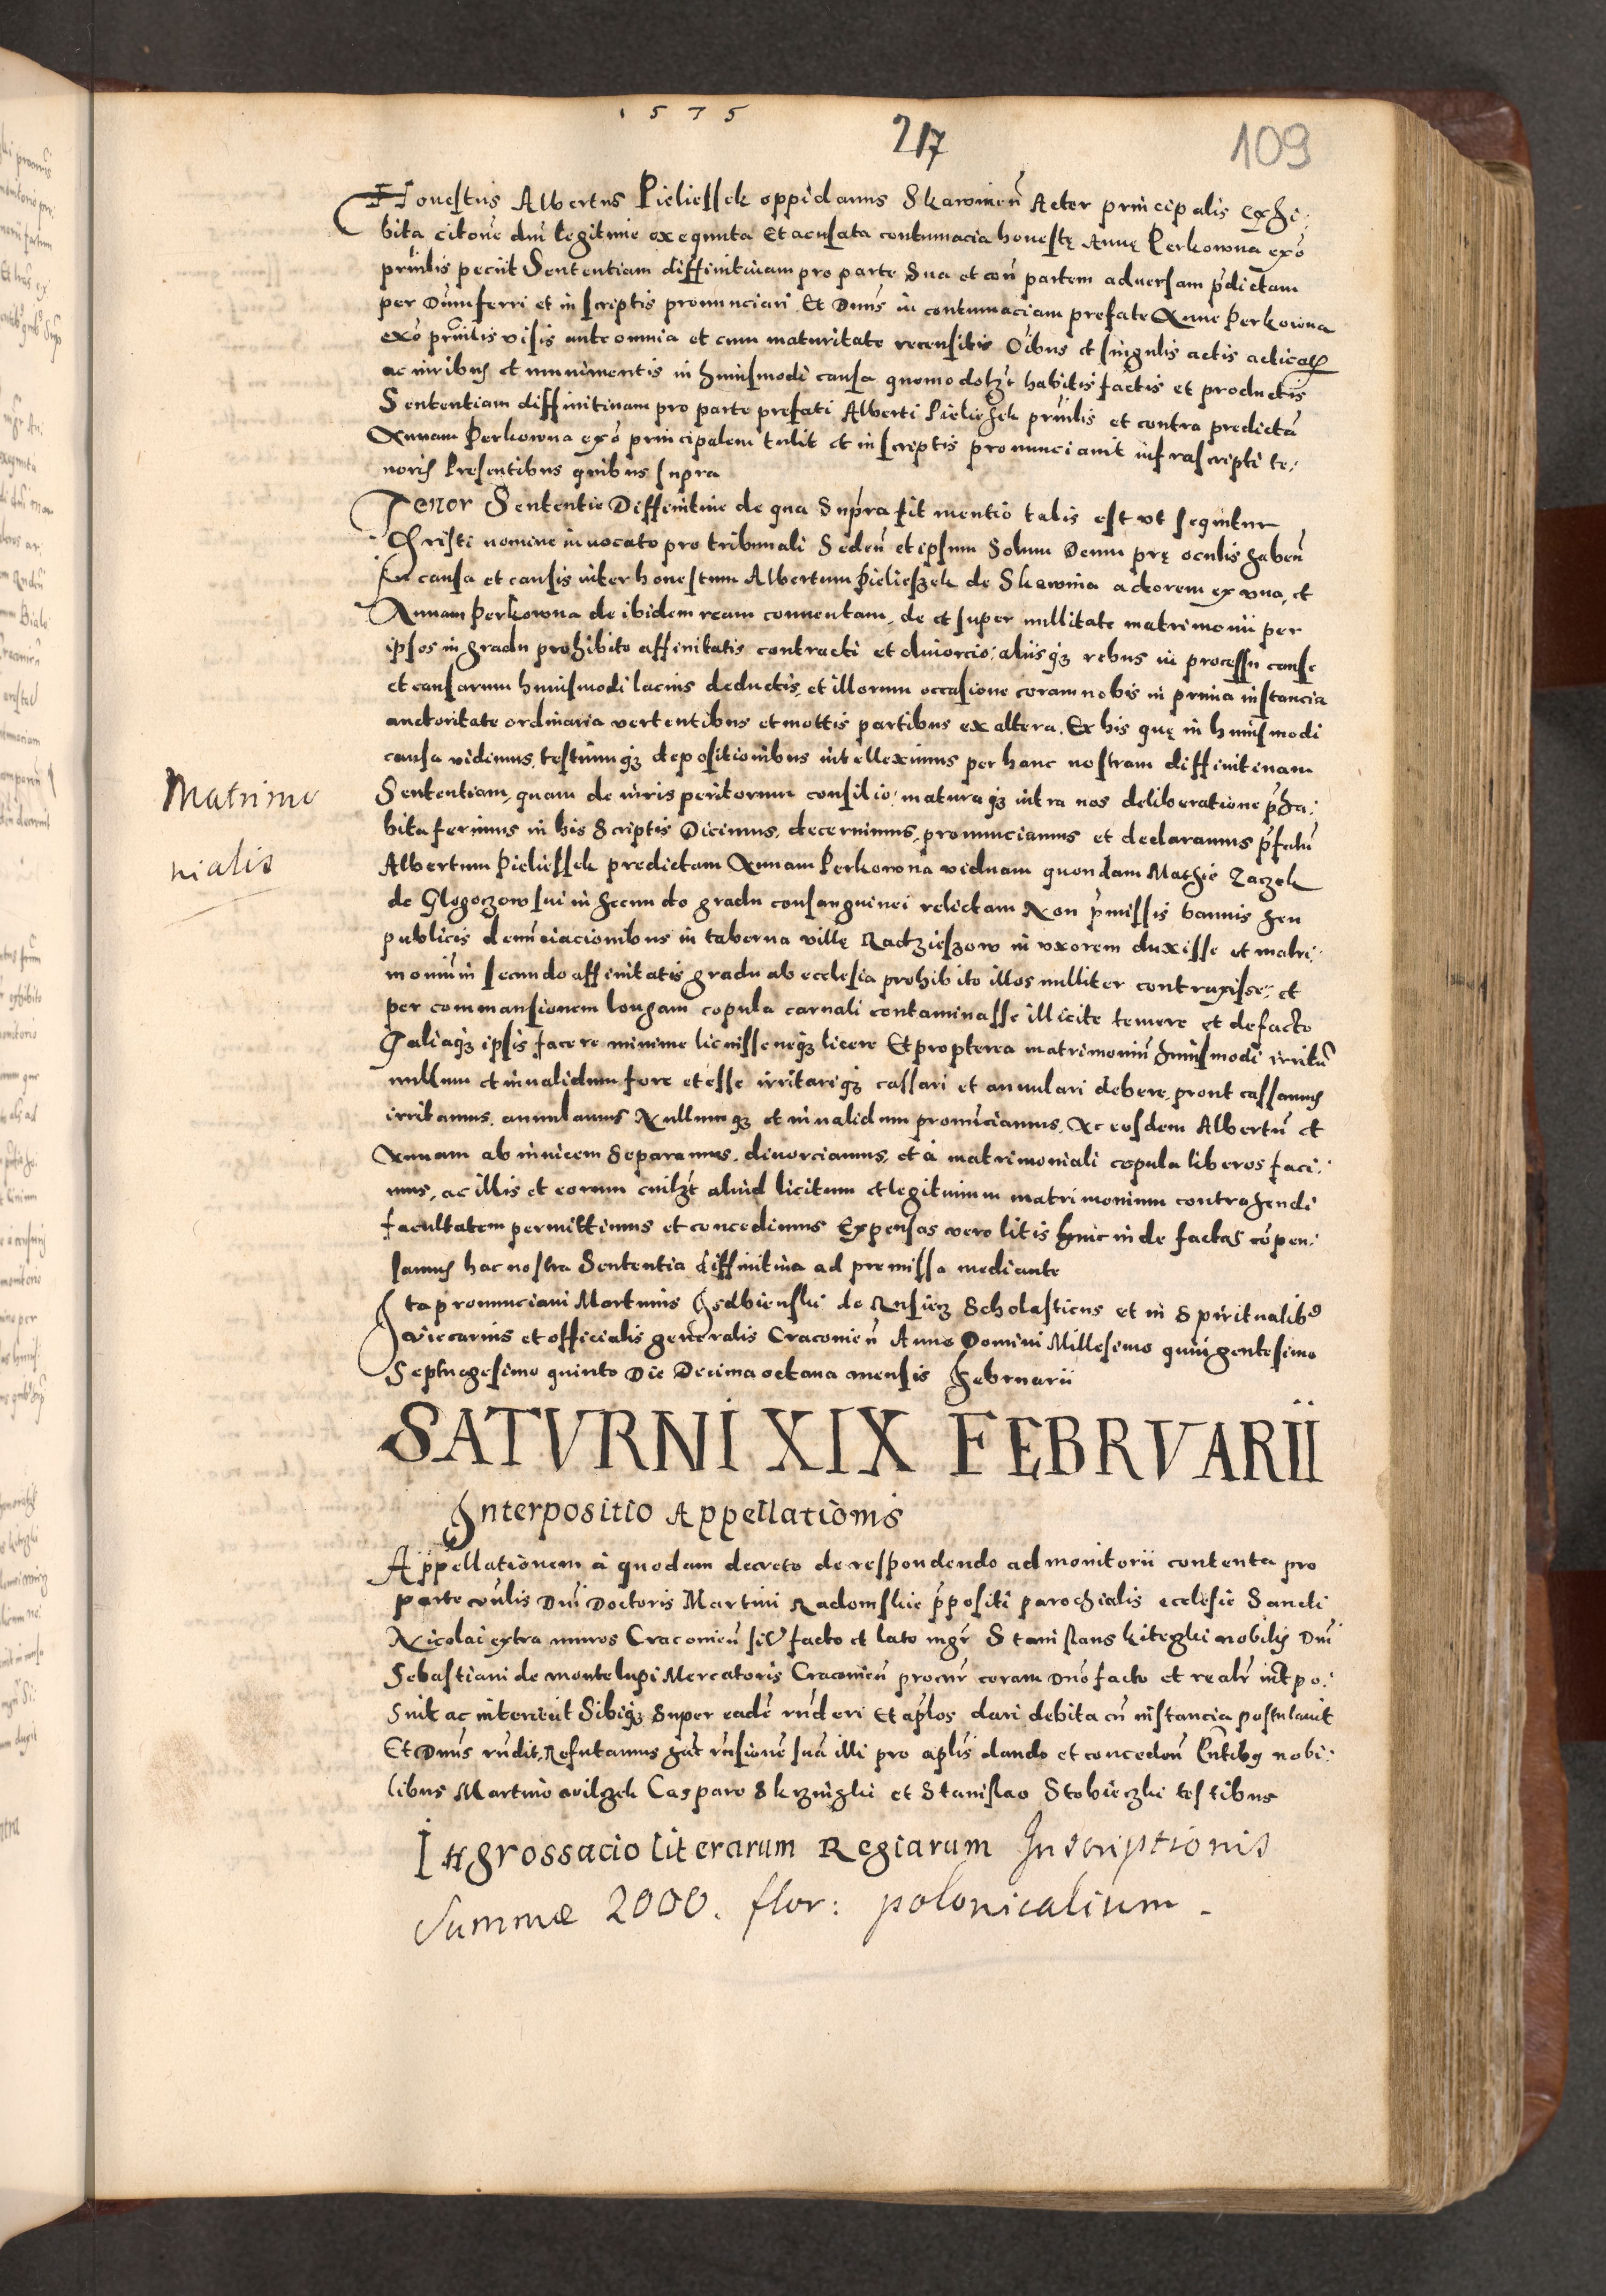 1575
217
109
Honestus Albertus Pieliessek oppidanus Skawinen̄ Actor principalis exhi:
bita citōne dn̄i legitime exequuta Et acusata contumacia honestę Annę Perkowna exō
prn̄lis peciit Sententiam diffinitiuam pro parte Sua et con̄ partem aduersam p̄dictam
per Dūm ferri et in scriptis pronunciari Et Dnus in contumaciam prefate Anne Perkowna
exō prn̄lis visis ante omnia et cum maturitate recensitis Oībus et singulis actis acticat̄
ac iuribus et munimentis in huiusmodi causa quomodolz̄t habitis factis et productis
Sententiam diffinitiuam pro parte prefati Alberti Pielieszek prn̄lis et contra predictā
Annam Perkowna exō principalem tulit et in scriptis pronunciauit infrascripti te:
noris Presentibus quibus supra
Tenor Sententie Diffinitiue de qua Supra fit mentio talis est vt sequitur
Christi nomine inuocato pro tribunali Seden̄ et ipsum Solum Deum prę oculis haben̄
In causa et causis inter honestum Albertum Pielieszek de Skawina actorem ex vna, et
Annam Perkowna de ibidem ream conuentam, de et super nullitate matrimonii per
ipsos in gradu prohibito affinitatis contracti et diuorcio: aliisqȝ rebus in processu cause
et causarum huiusmodi lacius deductis, et illorum occasione coram nobis in prima instancia
auctoritate ordinaria vertentibus et mottis partibus ex altera. Ex his quę in huiusmodi
causa vidimus, testiumqȝ depositionibus intelleximus per hanc nostram diffinitiuam
Matrimo
nialis
Sententiam, quam de iuris peritorum consilio: maturaqȝ intra nos deliberatione p̄ha:
bita ferimus in his Scriptis Dicimus, decernimus, pronunciamus et declaramus p̄fatū
Albertum Pieliessek predictam Annam Perkowna viduam quondam Mathie Raczek
de Glogoczow sui in secundo gradu consanguinei relictam Non p̄missis bannis seu
publicis denūciacionibus in taberna villę Radzieszow in vxorem duxisse et matri:
moniū in secundo affinitatis gradu ab ecclesia prohibito illos nulliter contraxisse: et
per commansionem longam copula carnali contaminasse illicite temere et defacto
Taliaqȝ ipsis facere minime licuisse neqȝ licere Et propterea matrimoniū huiusmodi irritū
nullum et inualidum fore et esse irritariqȝ cassari et annulari debere, pront cassamus
irritamus, annulamus Nullumqȝ et inualidum pronūciamus, Ac eosdem Albertū et
Annam ab inuicem Separamus, diuorciamus, et à matrimoniali copula liberos faci:
mus, ac illis et eorum cuilz̄t aliud licitum et legitimum matrimonium contrahendi
facultatem permittimus et concedimus Expensas vero litis hinc inde factas cōpen:
samus hac nostra Sententia diffinitiua ad premissa mediante
Ita pronunciaui Martinus Isdbienski de Rusiecz Scholasticus et in Spiritualibꝰ
vicarius et officialis generalis Cracouien̄ Anno Domini Millesimo quingentesimo
Septuagesimo quinto Die Decima octaua mensis Februarii
SATVRNI XIX FEBRVARII
Interpositio Appellationis
Appellationem à quodam decreto de respondendo ad monitorii contenta pro
parte vn̄lis Dn̄i Doctoris Martini Radomskie p̄positi parochialis ecclesie Sancti
Nicolai extra muros Cracouien̄ facto et lato mgr̄ Stanislaus kitezki nobilis Dn̄i
Sebastiani de montelupi Mercatoris Cracouien̄ procur̄ coram Dn̄o facto et realr̄ int̄po:
Suit ac interiecit Sibiqȝ Super eadē rn̄deri Et ap̄los dari debita cū instancia postulauit
Et Dnus rn̄dit, Refutamus hāc rn̄sionē suā illi pro aplis dando et conceden̄ Pn̄tibꝰ nobi:
libus Martino wilczek Casparo Skrzinzki et Stanislao Stobieczki testibus
Ingrossacio literarum Regiarum Inscriptionis
Summæ 2000. flor: polonicalium.